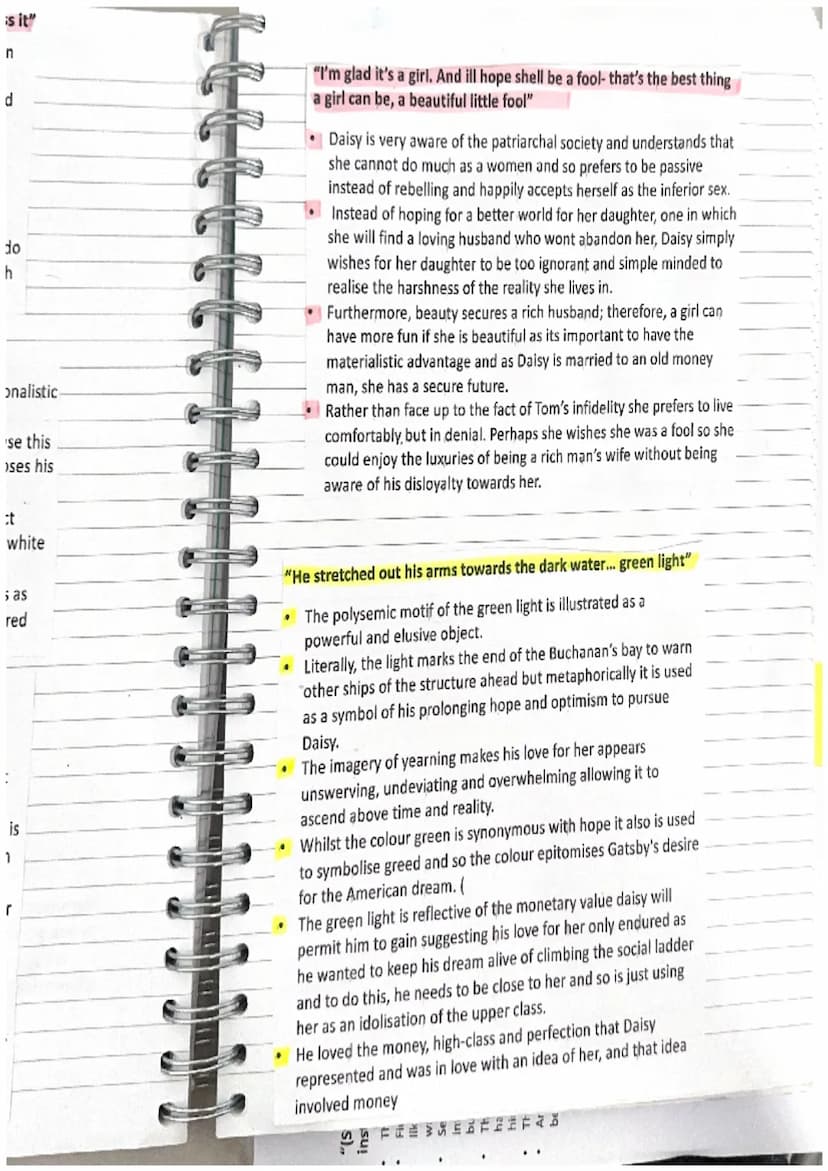 s it"
n
d
do
h
onalistic
se this
oses his
ct
white
s as
red
:
is
r
"I'm glad it's a girl. And ill hope shell be a fool- that's the best thing
a girl can be, a beautiful little fool"
• Daisy is very aware of the patriarchal society and understands that
she cannot do much as a women and so prefers to be passive
instead of rebelling and happily accepts herself as the inferior sex.
• Instead of hoping for a better world for her daughter, one in which
she will find a loving husband who wont abandon her, Daisy simply
wishes for her daughter to be too ignorant and simple minded to
realise the harshness of the reality she lives in.
• Furthermore, beauty secures a rich husband; therefore, a girl can
have more fun if she is beautiful as its important to have the
materialistic advantage and as Daisy is married to an old money
man, she has a secure future.
• Rather than face up to the fact of Tom's infidelity she prefers to live
comfortably, but in denial. Perhaps she wishes she was a fool so she
could enjoy the luxuries of being a rich man's wife without being
aware of his disloyalty towards her.
"He stretched out his arms towards the dark water... green light"
• The polysemic motif of the green light is illustrated as a
powerful and elusive object.
• Literally, the light marks the end of the Buchanan's bay to warn
other ships of the structure ahead but metaphorically it is used
as a symbol of his prolonging hope and optimism to pursue
Daisy.
• The imagery of yearning makes his love for her appears
unswerving, undeviating and overwhelming allowing it to
ascend above time and reality.
• Whilst the colour green is synonymous with hope it also is used
to symbolise greed and so the colour epitomises Gatsby's desire
for the American dream. (
• The green light is reflective of the monetary value daisy will
permit him to gain suggesting his love for her only endured as
he wanted to keep his dream alive of climbing the social ladder
and to do this, he needs to be close to her and so is just using
her as an idolisation of the upper class.
• He loved the money, high-class and perfection that Daisy
represented and was in love with an idea of her, and that idea
involved money
"(S
ins
• Tl
Fi
lik
w
• Se
in
bu
• Th
ha
hi
• Th
• Ar
be